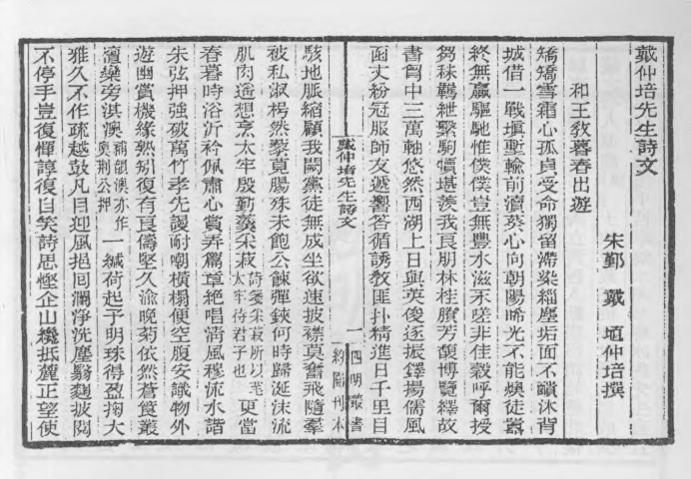 戴仲培先生詩文
宋鄞 戴 埴仲培撰
和王敎暮春出遊
矯矯雪霜心孤貞受命獨留滯染緇塵垢面不頮沐背
城借一戰塡塹輸前瀆葵心向朝陽晞光不能煥徒嚣
終無贏驅馳惟僕僕豈無豐水滋禾嗟非佳穀呼爾授
芻秣羈紲繫駒犢堪羨我良朋林桂賸芳馥博覽繹故
書胷中三萬軸悠然西湖上日與英俊逐振鐸揚儒風
函丈粉冠服師友遞響答循誘敎匪扑精進日千里目
戴仲培先生詩文
一
四明叢書
約園刊本
駭地脈縮顧我闒黨徒無成坐欲速披襟莫奮飛隨羣
被私淑枵然藜莧腸殊未飽公餗彈鋏何時歸涎沫流
肌肉遙想烹太牢殷勤羹采菽 荷羹采菽所以芼太牢待君子也 更當
春暮時浴沂衿佩肅心賞弄篇章絕唱淸風穆流水諧
朱弦押強破萬竹孝先謾耐嘲橫榻便空腹安識物外
遊幽賞機緣熟矧復有良儔堅久渝晚菊依然蒼筤叢
澶欒旁淇澳 韻澳亦作奧荆公押 一緘荷起予明珠得盈掬大
雅久不作疏越鼓凡目迎風挹囘瀾淨洗塵翳麴披閱
不停手豈復憚諄復自笑詩思慳企山纔抵麓正望使